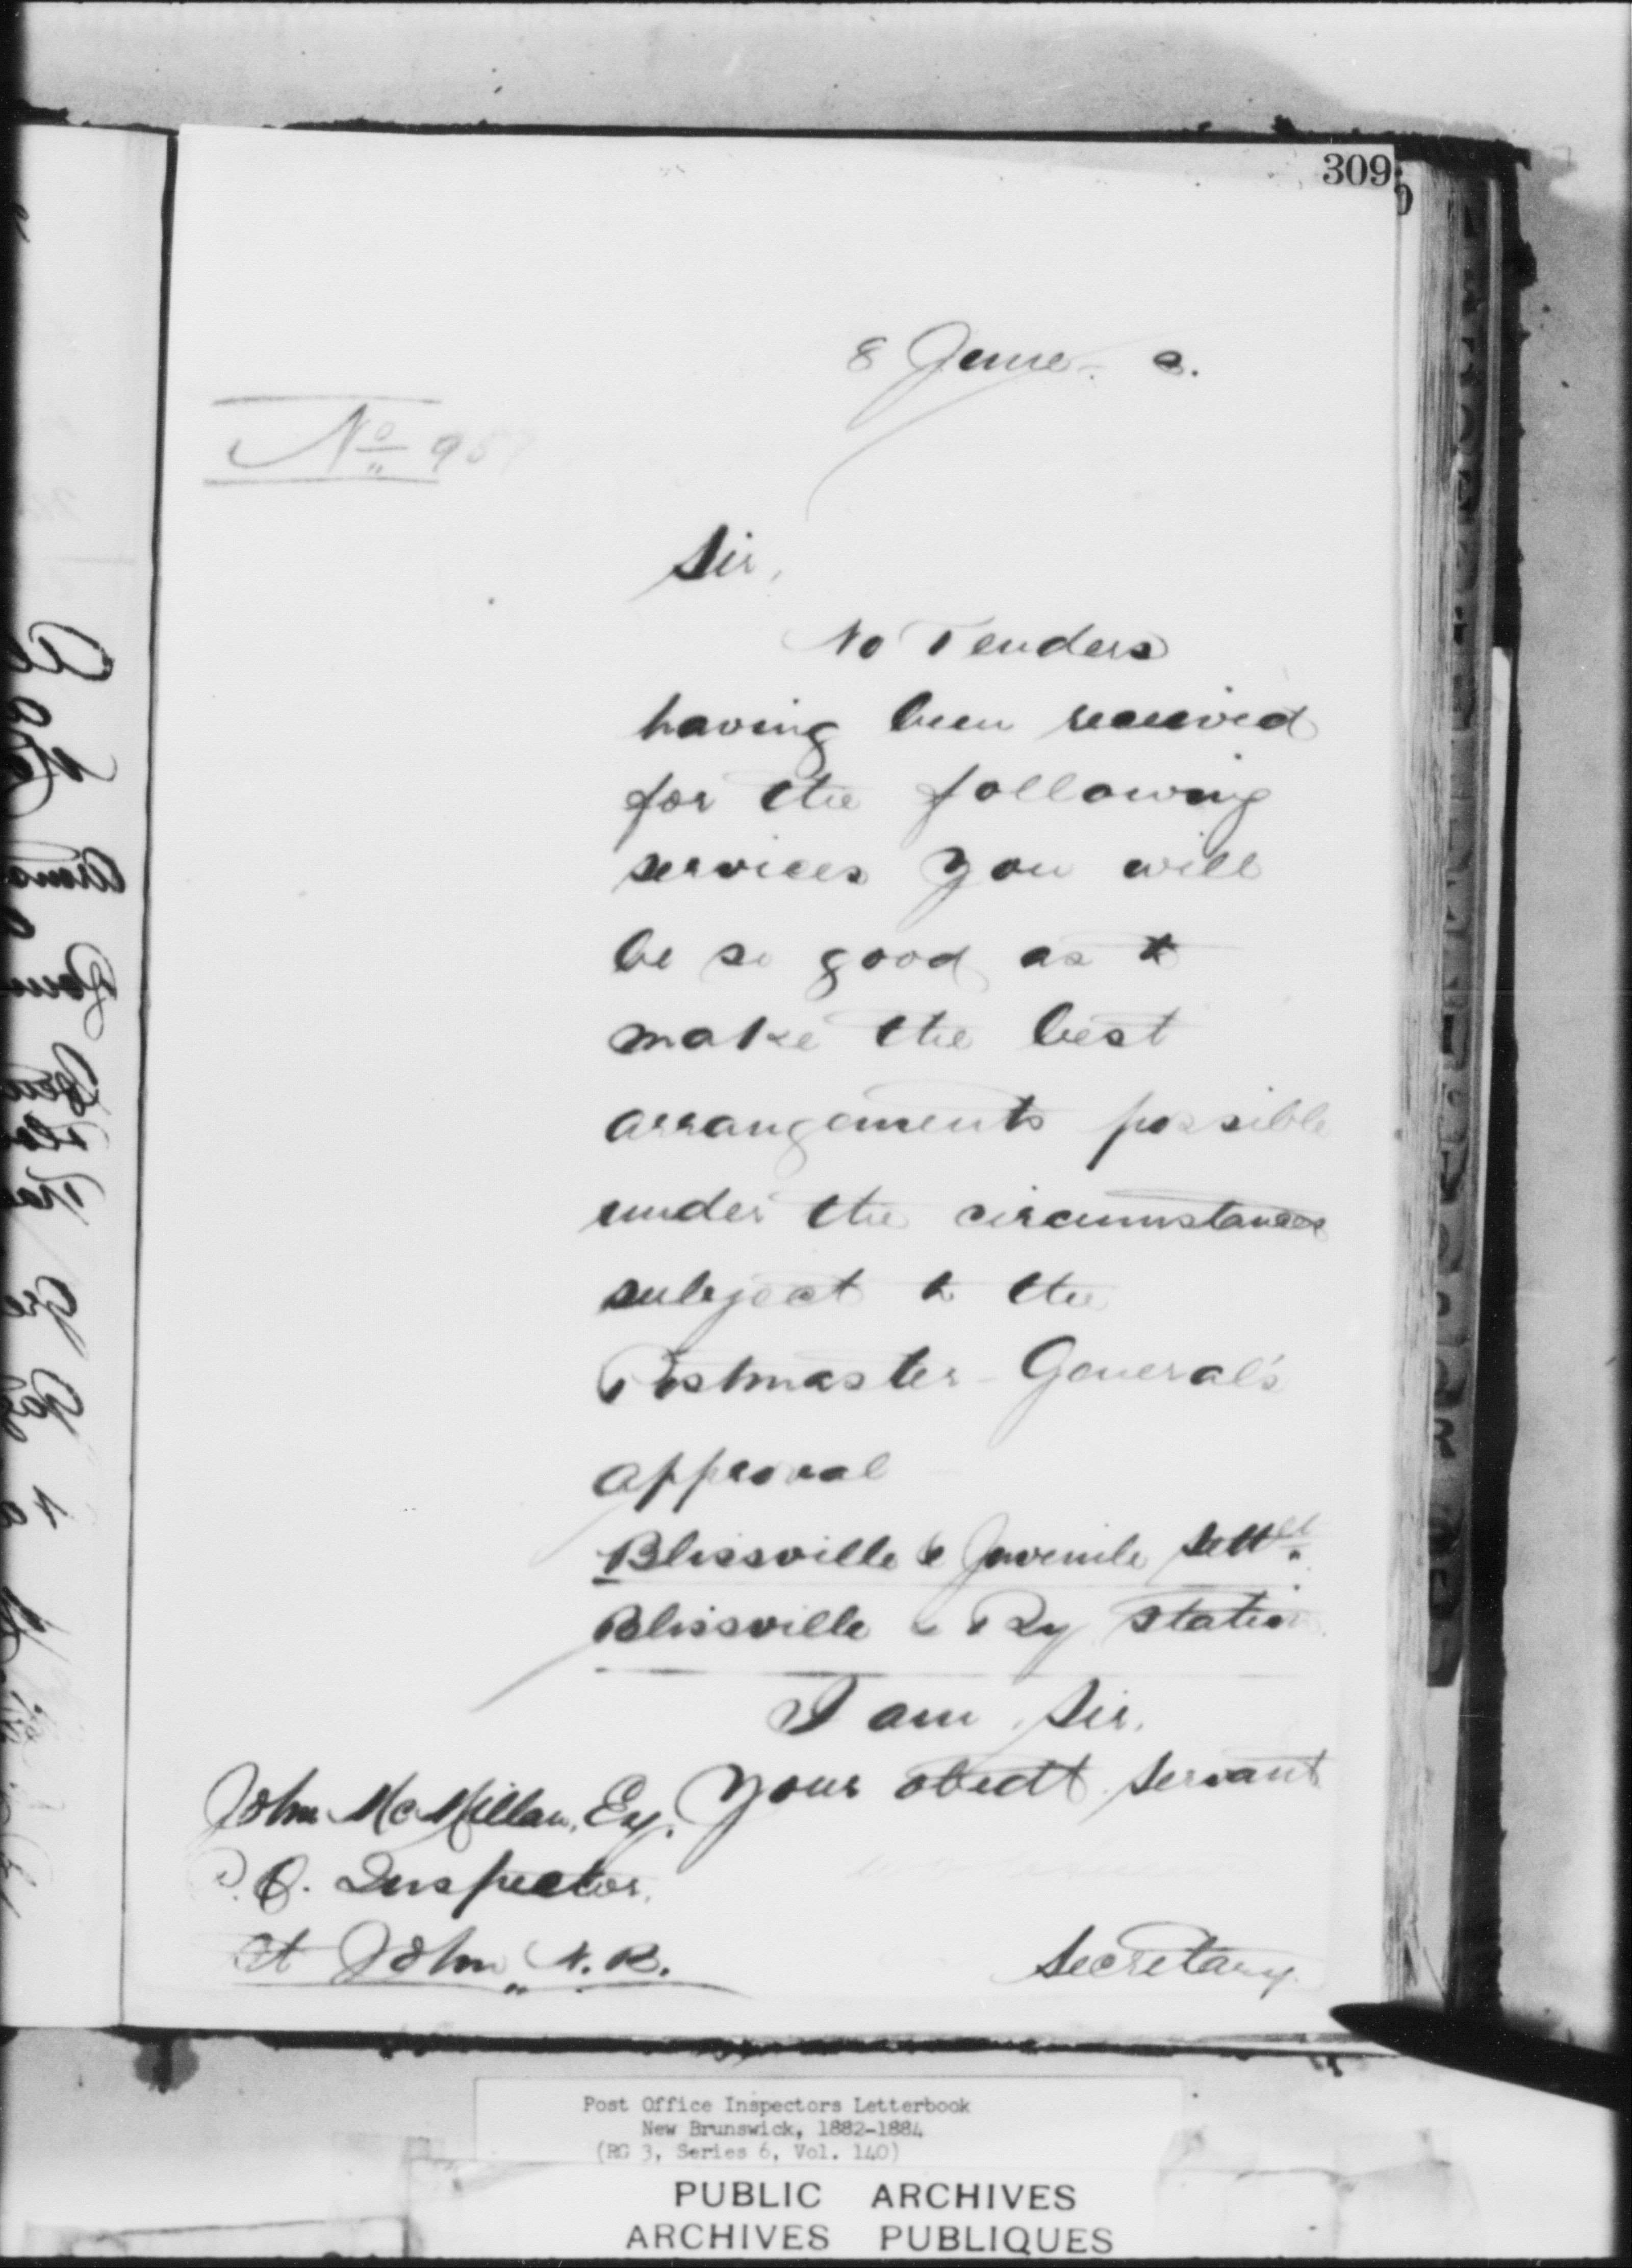 309
8 June
No 957
Sir,
No Tenders
having been received
for the following
services you will
be so good as to
make the best
arrangements possible
under the circumstances
subject to the
Postmaster-General's
approval
Blissville & Juvenile Settlt
Blissville & Ry Station
I am, Sir,
Your obedt servant
John McMillan, Esq.
P.O. Inspector,
St John, N.B.
Secretary
Post Office Inspectors Letterbook
New Brunswick, 1882-1884
(RG 3, Series 6, Vol. 140)
PUBLIC ARCHIVES
ARCHIVES PUBLIQUES